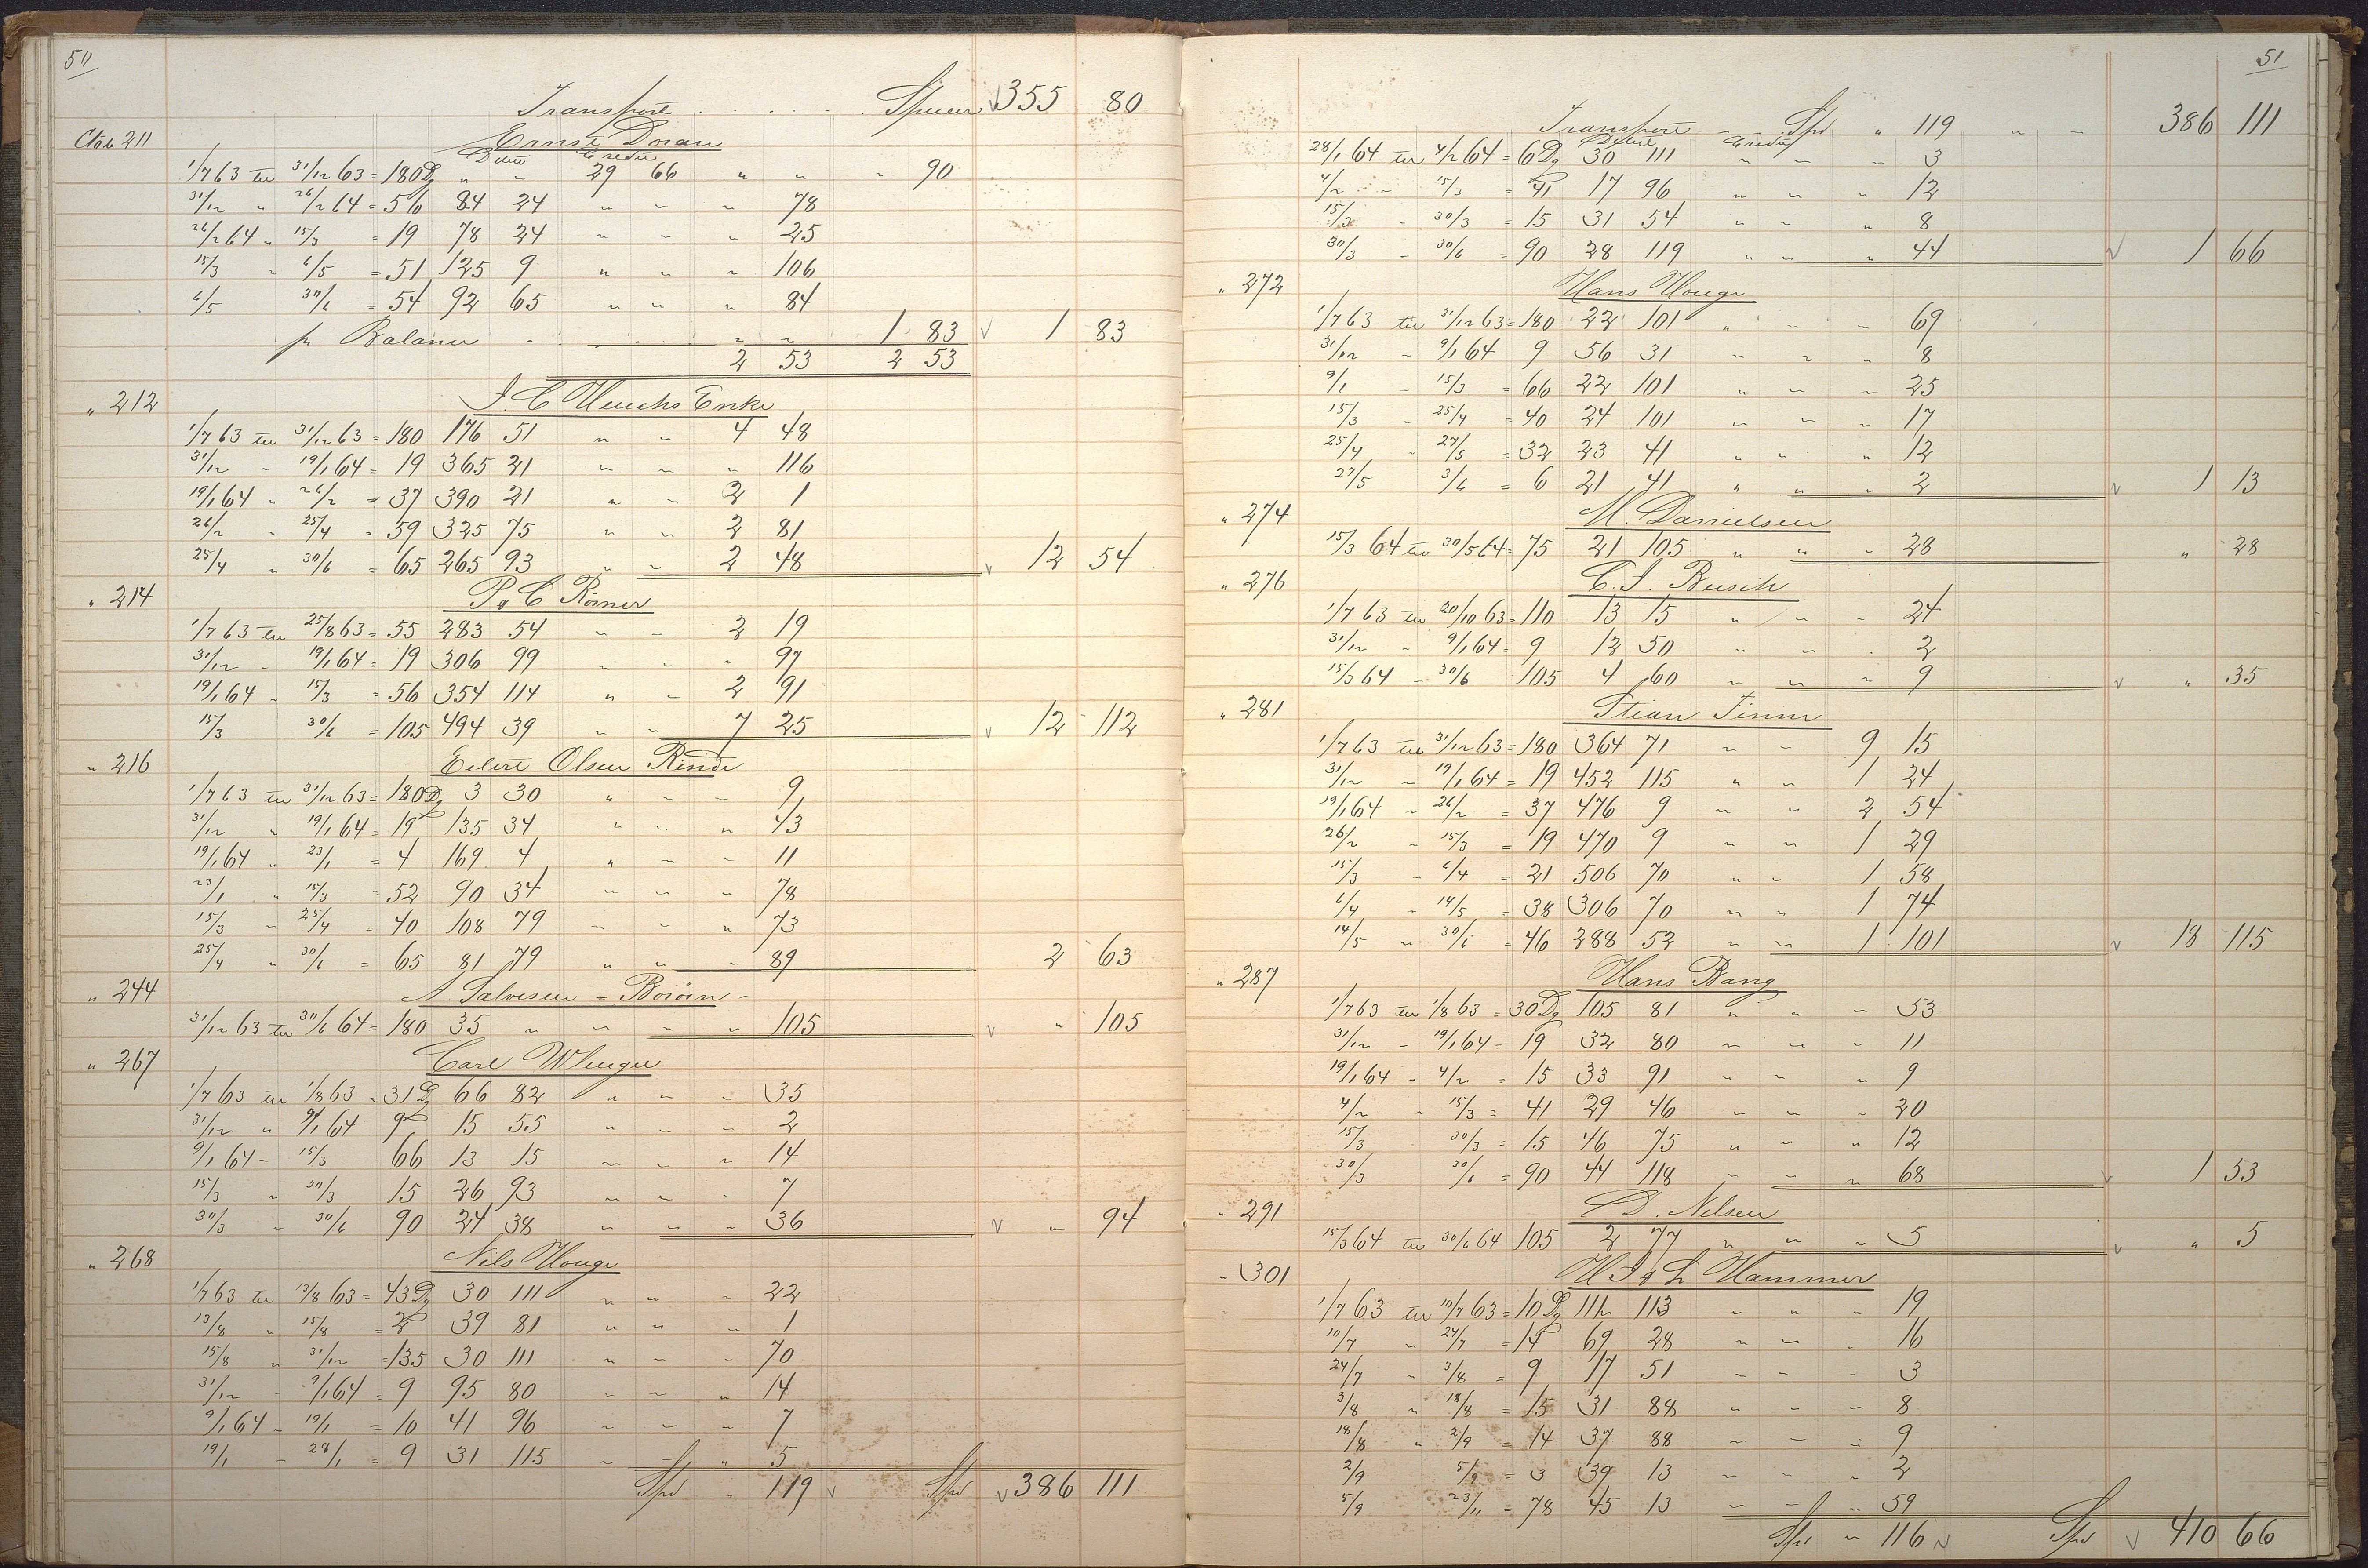 50
Transport . . . . . Specier 355 80
Cto 211 Ernst Doran
Debet Credit
1/7 63 til 31/12 63 = 180 Dg " " 29 66 " " " 90
31/12 " 26/2 64 = 56 84 24 " " " 78
26/2 64 " 15/3 = 19 78 24 " " " 25
15/3 " 6/5 = 51 125 9 " " " 106
6/5 30/6 = 54 92 65 " " " 84
pr Balance . . . " " 1 83 √ 1 83
2 53 2 53
" 212 J. C. Enke
1/7 63 til 31/12 63 = 180 176 51 " " 4 48
31/12 " 19/1 64 = 19 365 21 " " " 116
19/1 64 " 26/2 = 37 390 21 " " 2 1
26/2 " 25/4 = 59 325 75 " " 2 81
25/4 " 30/6 = 65 265 93 " " 2 48 √ 12 54
" 214 P & C Römer
1/7 63 til 25/8 63 = 55 283 54 " " 2 19
31/12 " 19/1 64 = 19 306 99 " " " 97
19/1 64 " 15/3 = 56 354 114 " " 2 91
15/3 30/6 = 105 494 39 " " 7 25 √ 12 112
" 216 Eilert Olsen Rinde
1/7 63 til 31/12 63 = 180 Dg 3 30 " " " 9
31/12 " 19/1 64 = 19 135 34 " " " 43
19/1 64 " 23/1 = 4 169 4 " " " 11
23/1 " 15/3 = 52 90 34 " " " 78
15/3 " 25/4 = 40 108 79 " " " 73
25/4 " 30/6 = 65 81 79 " " " 89 2 63
" 244 A. Salvesen =
31/12 63 til 30/6 64 = 180 35 " " " " 105 √ " 105
" 267 Carl
1/7 63 til 1/8 63 = 31 Dg 66 82 " " " 35
31/12 " 9/1 64 9 15 55 " " " 2
9/1 64 - 15/3 66 13 15 " " " 14
15/3 " 30/3 15 26 93 " " " 7
30/3 " 30/6 90 24 38 " " " 36 √ " 94
" 268 Nils Houge
1/7 63 til 13/8 63 = 43 Dg 30 111 " " " 22
13/8 " 15/8 = 2 39 81 " " " 1
15/8 " 31/12 = 135 30 111 " " " 70
31/12 - 9/1 64 = 9 95 80 " " " 14
9/1 64 - 19/1 = 10 41 96 " " " 7
19/1 - 28/1 = 9 31 115 " " " 5
Spd " 119 √ Spd √ 386 111
51
Transport - - Spd " 119 " - 386 111
Debet Credit
28/1 64 til 4/2 64 = 6 Dg 30 111 " " " 3
4/2 - 15/3 = 41 17 96 " " " 12
15/3 - 30/3 = 15 31 54 " " " 8
30/3 - 30/6 = 90 28 119 " " " 44 √ 1 66
" 272 Hans Houge
1/7 63 til 31/12 63 = 180 22 101 " " " 69
31/12 - 9/1 64 9 56 31 " " " 8
9/1 - 15/3 = 66 22 101 " " " 25
15/3 - 25/4 = 40 24 101 " " " 17
25/4 - 27/5 = 32 23 41 " " " 12
27/5 3/6 = 6 21 41 " " " 2 √ 1 13
" 274 M. Danielsen
15/3 64 til 30/5 64 = 75 21 105 " " " 28 " 28
" 276 C. J. Busch
1/7 63 til 20/10 63 = 110 13 15 " " " 24
31/12 - 9/1 64 = 9 12 50 " " " 2
15/3 64 - 30/6 105 4 60 " " " 9 √ " 35
" 281 Stian Finne
1/7 63 til 31/12 63 = 180 364 71 " " 9 15
31/12 - 19/1 64 = 19 452 115 " " 1 24
19/1 64 - 26/2 = 37 476 9 " " 2 54
26/2 - 15/3 = 19 470 9 " " 1 29
15/3 - 6/4 = 21 506 70 " " 1 58
6/4 - 14/5 = 38 306 70 " " 1 74
14/5 " 30/6 = 46 288 52 " " 1 101 √ 18 115
" 287 Hans Bang
1/7 63 til 1/8 63 = 30 Dg 105 81 " " " 53
31/12 - 19/1 64 = 19 32 80 " " " 11
19/1 64 - 4/2 = 15 33 91 " " " 9
4/2 - 15/3 = 41 29 46 " " " 20
15/3 30/3 = 15 46 75 " " " 12
30/3 30/6 = 90 44 118 " " " 68 √ 1 53
" 291 D. Nelsen
15/3 64 til 30/6 64 105 2 77 " " " 5 √ " 5
" 301 H J & L Hammer
1/7 63 til 10/7 63 = 10 Dg 113 " " " 19
10/7 " 24/7 = 14 69 28 " " " 16
24/7 " 3/8 = 9 17 51 " " " 3
3/8 " 18/8 = 15 31 88 " " " 8
18/8 " 2/9 = 14 37 88 " " " 9
2/9 5/9 = 3 39 13 " " " 2
5/9 23/11 = 78 45 13 " " " 59
Spd " 116 √ Spd √ 410 66